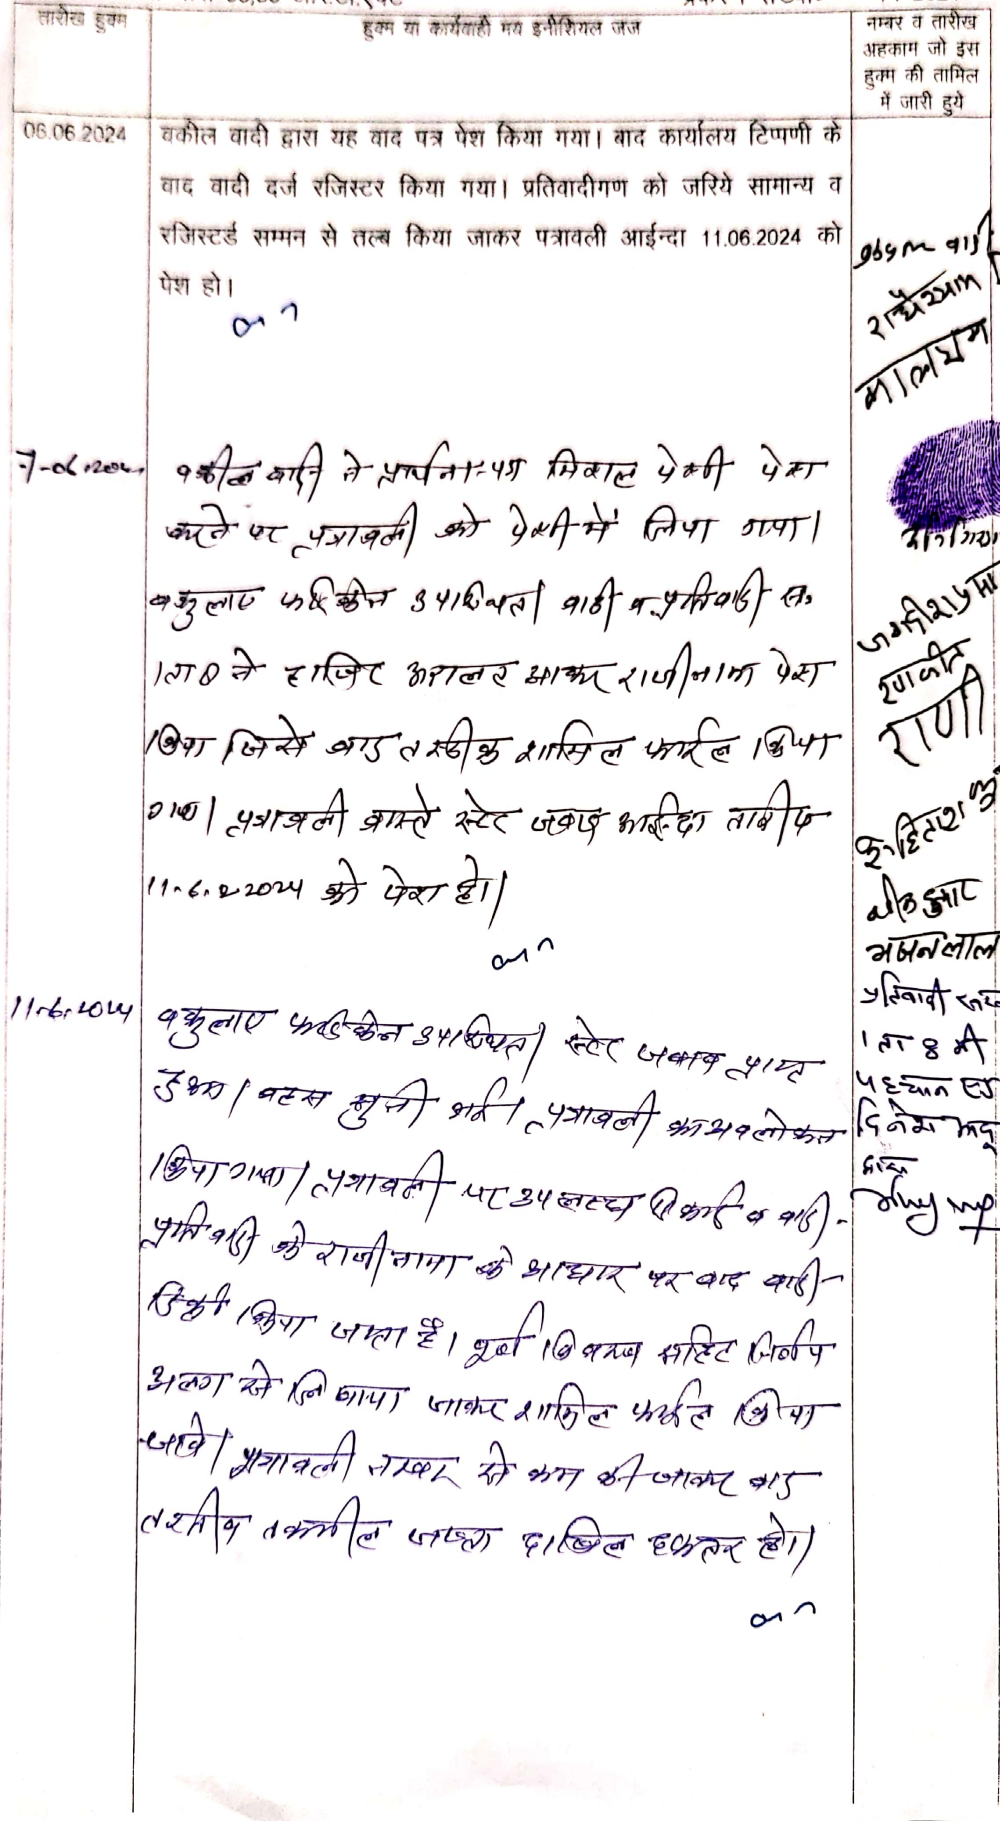 तारीख हुक्म
हुक्म या कार्यवाही मय इनीशियल जज
नम्बर व तारीख
अहकाम जो इस
हुक्म की तामिल
में जारी हुये
06.06.2024
वकील वादी द्वारा यह वाद पत्र पेश किया गया। बाद कार्यालय टिप्पणी के
वाद वादी दर्ज रजिस्टर किया गया। प्रतिवादीगण को जरिये सामान्य व
रजिस्टर्ड सम्मन से तल्ब किया जाकर पत्रावली आईन्दा 11.06.2024 को
पेश हो।
वकील वादी ने प्रार्थना-पत्र मिसल पेशी पेश
करने पर पत्रावली को पेशी में लिया गया।
वकुलाए फरिकेन उपस्थित। वादी व प्रतिवादी स.
1 ता 8 ने हाजिर अदालत आकर राजीनामा पेश
किया जिसे बाद तस्दीक शामिल फाईल किया
गया। पत्रावली वास्ते स्टेट जवाब आईन्दा तारीख
11.6.2024 को पेश हो।
11.6.2024
वकुलाए फरिकेन उपस्थित। स्टेट जवाब प्राप्त
हुआ। बहस सुनी गई। पत्रावली का अवलोकन
किया गया। पत्रावली पर उपलब्ध रिकार्ड व वादी-
प्रतिवादी के राजीनामा के आधार पर वाद वादी
डिक्री किया जाता है। पूर्ण विवरण सहित निर्णय
अलग से लिखाया जाकर शामिल फाईल किया
जावे। पत्रावली नम्बर से कम की जाकर बाद
तरतीब तकमील जाब्ता दाखिल दफ्तर हो।
राधेश्याम
मालाराम
रणजीत
राणी
भजनलाल
प्रतिवादी
1 ता 8 की
पहचान